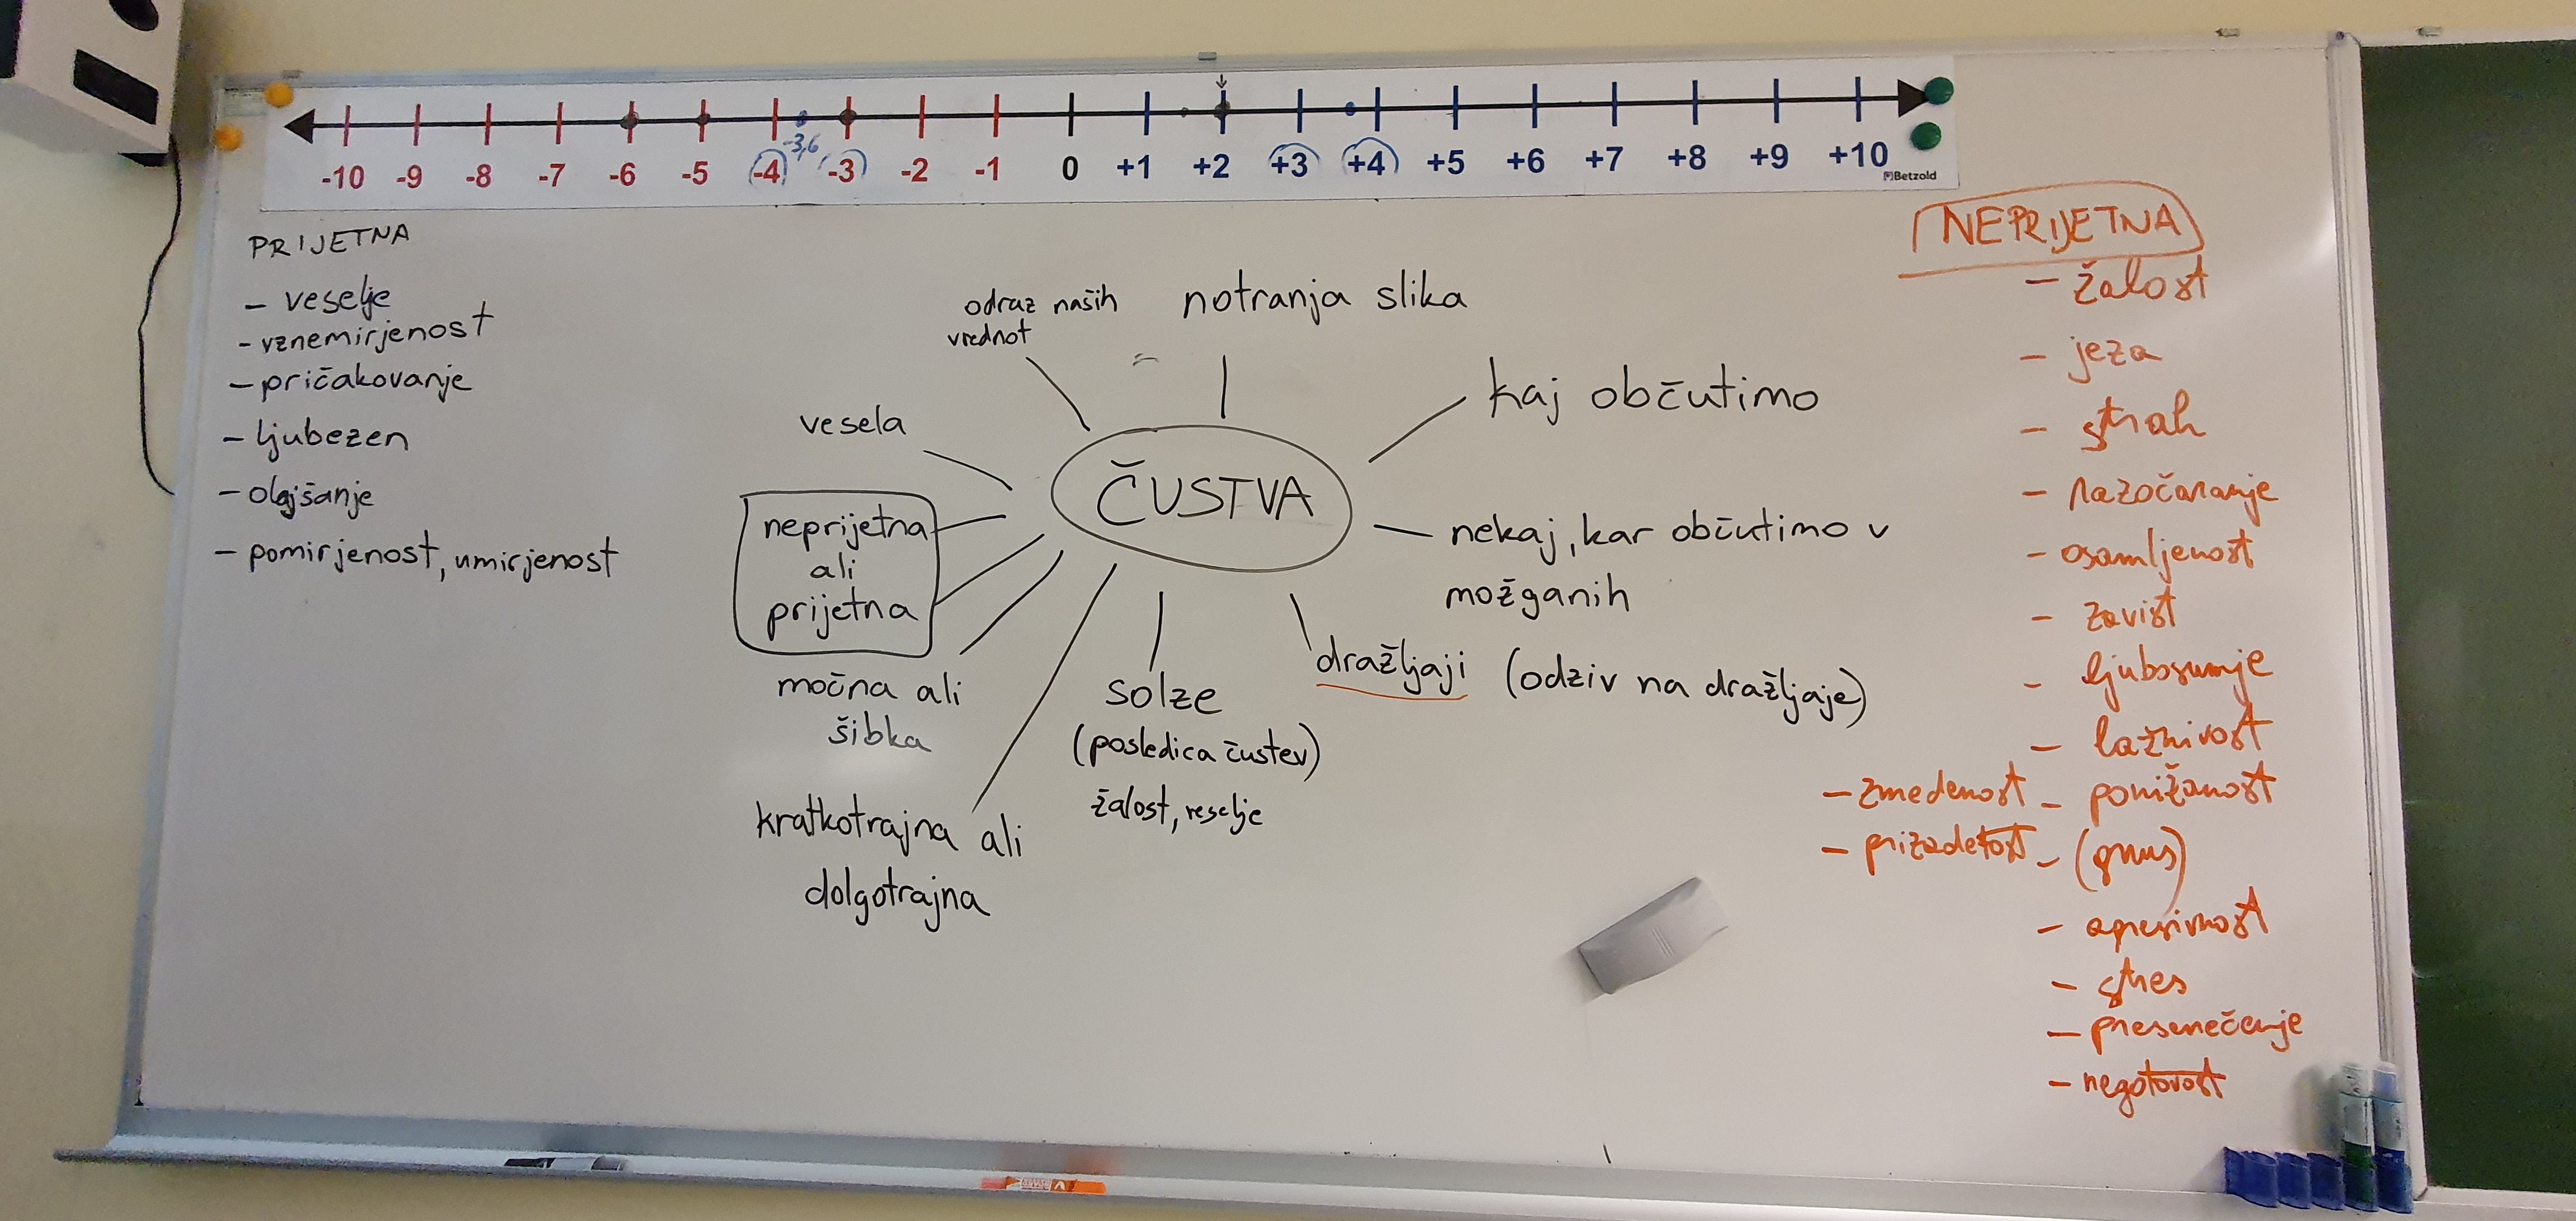 -10 -9 -8 -7 -6 -5 -4 -3 -2 -1 0 +1 +2 +3 +4 +5 +6 +7 +8 +9 +10
-3,6
Betzold
PRIJETNA
- veselje
- vznemirjenost
- pričakovanje
- ljubezen
- olajšanje
- pomirjenost, umirjenost
odraz naših
vrednot
notranja slika
kaj občutimo
vesela
ČUSTVA
neprijetna
ali
prijetna
nekaj, kar občutimo v
možganih
močna ali
šibka
solze
(posledica čustev)
žalost, veselje
dražljaji (odziv na dražljaje)
kratkotrajna ali
dolgotrajna
NEPRIJETNA
- žalost
- jeza
- strah
- razočaranje
- osamljenost
- zavist
- ljubosumje
- lažnivost
- zmedenost - ponižanost
- prizadetost - (gnus)
- agresivnost
- stres
- presenečenje
- negotovost